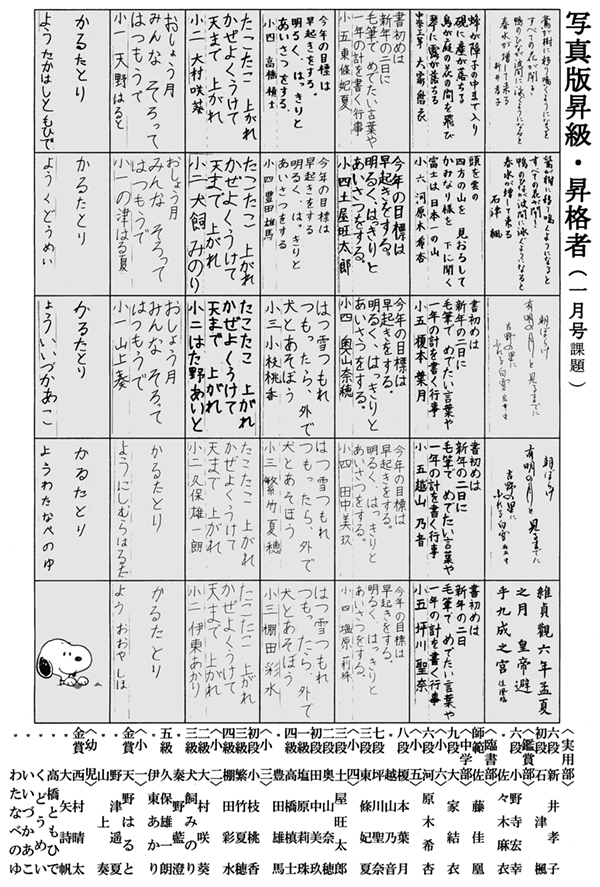 写真版昇級・昇格者（一月号課題）
鶯が樹に移り鳴くようになると
すべての花が開き
鴨のひなが波間に泳ぐようになると
春水が増して来る
新井孝子
蜂が障子の中まで入り
硯に塵が落ちる
鳥が庭の花の間を飛び
琴に露が落ちる
大家結衣
書初めは
新年の二日に
毛筆で めでたい言葉や
一年の計を書く行事
小五 東條妃夏
今年の目標は
早起きをする。
明るく、はっきりと
あいさつをする。
小四 高橋槙士
たこたこ 上がれ
かぜよくうけて
天まで 上がれ
小二 大村咲葵
おしょう月
みんな そろって
はつもうで
小一 天野はると
かるたとり
よう たかはしともひで
鶯が樹に移り鳴くようになると
すべての花が開き
鴨のひなが波間に泳ぐようになると
春水が増して来る
石津 楓
頭を雲の
四方の山を 見おろして
かみなり様を 下に聞く
富士は日本一の山
小六 河原木希杏
今年の目標は
早起きをする。
明るく、はっきりと
あいさつをする。
小四 土屋旺太郎
今年の目標は
早起きをする
明るく、はっきりと
あいさつをする
小四 豊田雄馬
たこたこ 上がれ
かぜよくうけて
天まで 上がれ
小二 犬飼 みのり
おしょう月
みんな そろって
はつもうで
小一 の津はる夏
かるたとり
よう くどうめい
朝ぼらけ
有明の月と見るまでに
吉野の里に
ふれる白雪
書初めは
新年の二日に
毛筆で めでたい言葉や
一年の計を書く行事
小五 榎本 葉月
今年の目標は
早起きをする。
明るく、はっきりと
あいさつをする。
小四 奥山奈穂
はつ雪つもれ
つもったら、外で
犬とあそぼう
小三 小枝桃香
たこたこ 上がれ
かぜよくうけて
天まで 上がれ
小二 はた野あい
おしょう月
みんな そろって
はつもうで
小一 山上奏
かるたとり
よう いいづかあこ
朝ぼらけ
有明の月と 見るまでに
吉野の里に
ふれる白雪
書初めは
新年の二日に
毛筆で めでたい言葉や
一年の計を書く行事
小五 越山 乃音
今年の目標は
早起きをする。
明るく、はっきりと
あいさつをする。
小四 田中美玖
はつ雪つもれ
つもったら、外で
犬とあそぼう
小三 繁竹夏穂
たこたこ 上がれ
かぜよくうけて
天まで 上がれ
小二 久保雄一朗
かるたとり
よう にしむらはるた
かるたとり
よう わたなべのゆ
維貞觀六年孟夏
之月 皇帝避
手九成之宮
書初めは
新年の二日
毛筆で めでたい言葉や
一年の計を書く行事
小五 坪川 聖奈
今年の目標は
早起きをする。
明るく、はっきりと
あいさつをする。
小四 塩原莉珠
はつ雪つもれ
つもったら、外で
犬とあそぼう
小三 棚田彩水
たこたこ 上がれ
かぜよくうけて
天まで 上がれ
小二 伊東あかり
かるたとり
よう おおやしほ
〈実用部〉
六段 新井孝子
初段 石津楓
〈鑑賞部〉
六段 小野寺宏幸
〃 佐々木麻衣
〈臨書部〉
師範 佐藤佳凰
〈中学部〉
九段 大家結衣
〈小六〉
六段 河原木希杏
〈小五〉
八段 榎本葉月
〃 越山乃音
七段 坪川聖奈
〃 東條妃夏
〈小四〉
三段 土屋旺太郎
二段 奥山奈穂
初段 田中美玖
一級 塩原莉珠
四級 高橋槙士
〃 豊田雄馬
〈小三〉
初段 小枝桃香
三級 繁竹夏穂
四級 棚田彩水
〈小二〉
二級 大村咲葵
三級 犬飼みのり
〃 秦野藍
〃 久保雄一朗
五級 伊東あかり
〈小一〉
天賞 天野はると
〃 野津遥夏
〃 山上奏
〈幼児〉
金賞 西村晴太
〃 大矢詩帆
〃 高橋ともひで
〃 くどうめい
〃 いいづかあこ
〃 わたなべのゆ